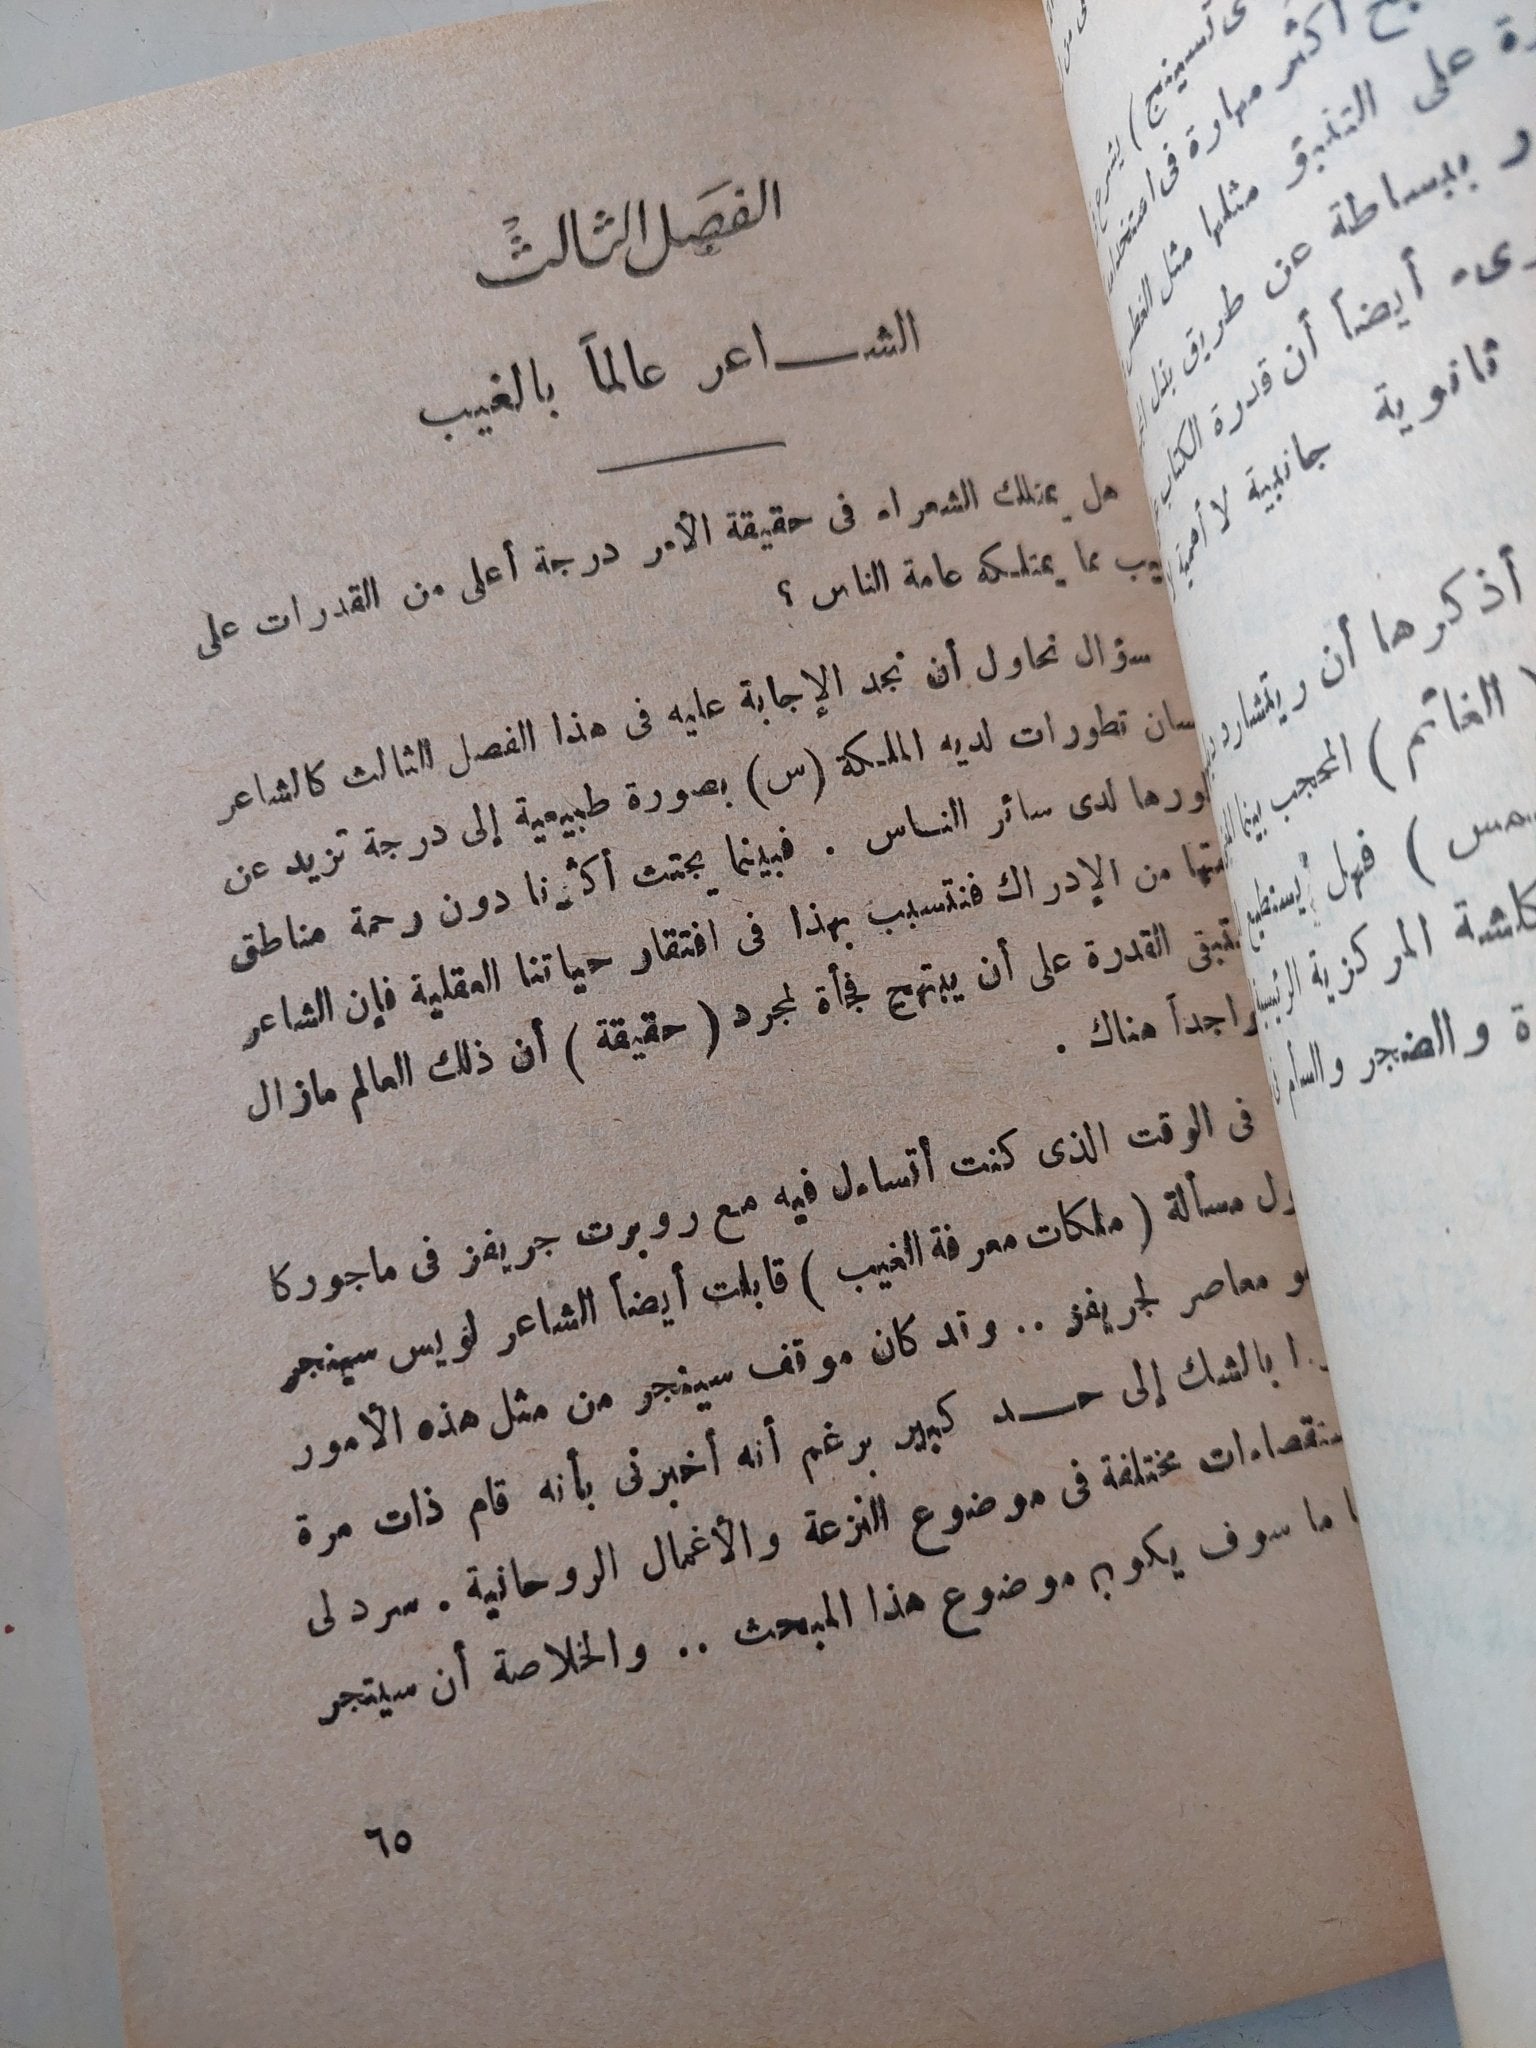 الفصل الثالث
الشاعر عالماً بالغيب
هل يمتلك الشعراء فى حقيقة الأمر درجة أعلى من القدرات على
يب مما يمتلكه عامة الناس ؟
سؤال نحاول أن نجد الإجابة عليه فى هذا الفصل الثالث كالشاعر
سان تطورات لديه الملكة (س) بصورة طبيعية إلى درجة تزيد عن
ورها لدى سائر الناس . فبينما يجتث أكثرنا دون رحمة مناطق
من الإدراك فنتسبب بهذا فى افتقار حياتنا العقلية فإن الشاعر
القدرة على أن يبتهج فجأة لمجرد ( حقيقة ) أن ذلك العالم مازال
اجداً هناك .
فى الوقت الذى كنت أتساءل فيه مع روبرت جريفز فى ماجوركا
ول مسألة ( ملكات معرفة الغيب ) قابلت أيضاً الشاعر لويس سينجر
و معاصر لجريفز .. وقد كان موقف سينجر من مثل هذه الأمور
ا بالشك إلى حد كبير برغم أنه أخبرنى بأنه قام ذات مرة
ستقصاءات مختلفة فى موضوع النزعة والأعمال الروحانية . سرد لى
ا ما سوف يكون موضوع هذا المبحث .. والخلاصة أن سيتجر
٦٥
أكثر مهارة فى
على التنبؤ مثلها مثل
ببساطة عن طريق بذل
أيضاً أن قدرة الكتاب
ثانوية جانبية لا أهمية
أذكرها أن ريتشارد
( الغائم ) المحجب بينما
) فهل يستطيع
المركزية الرئيسية
والضجر والسأم